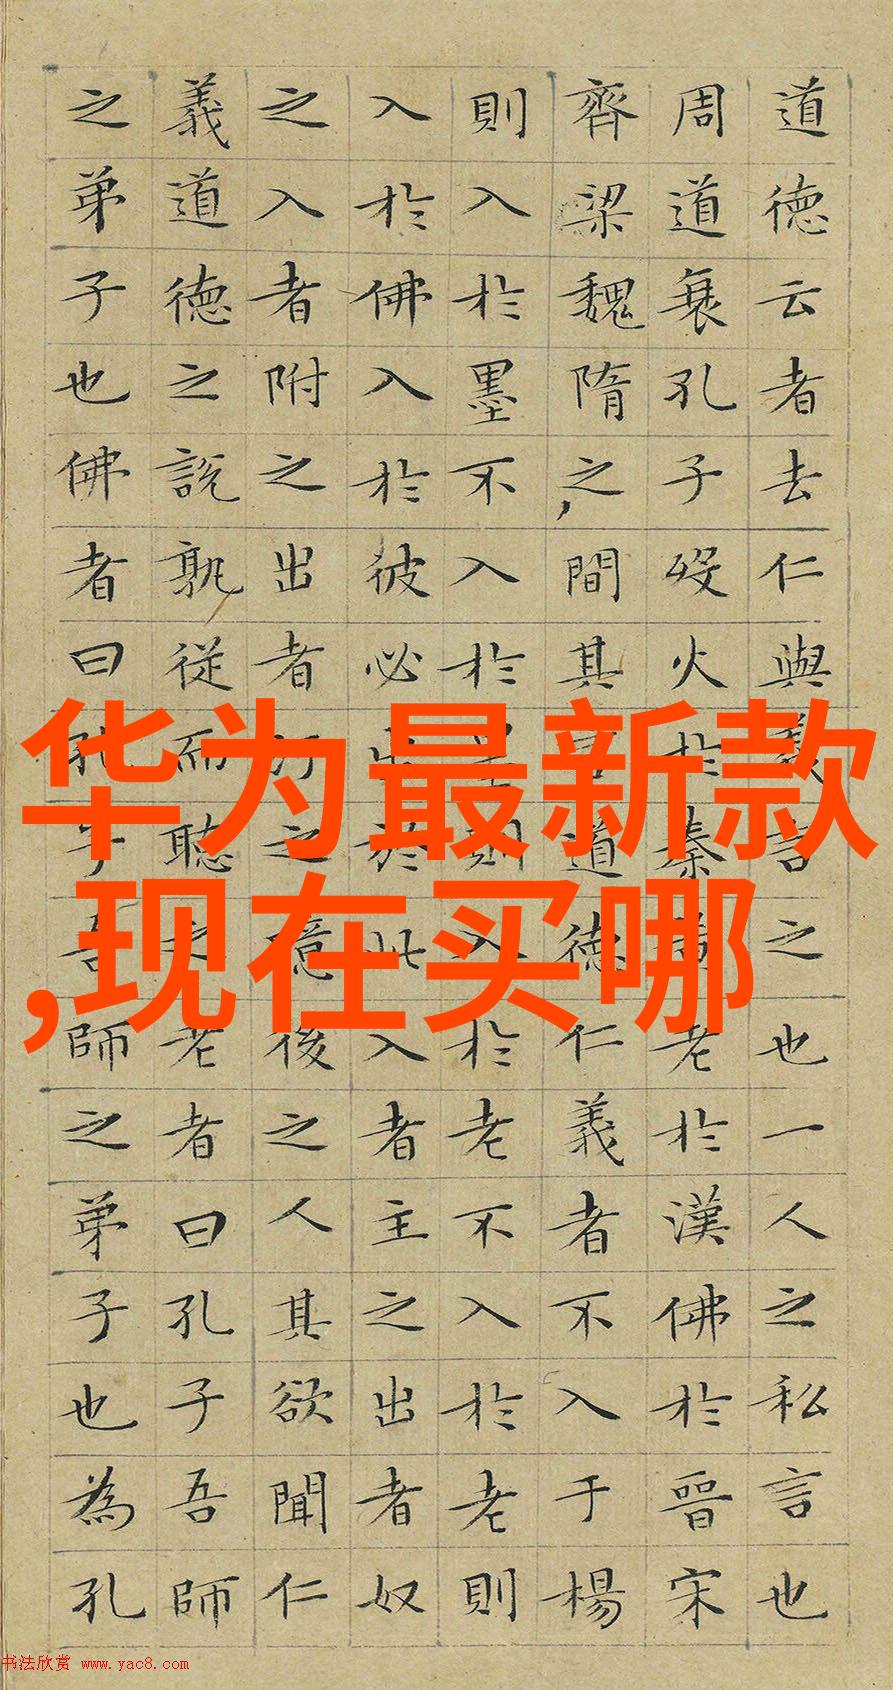 道德云者去仁與義言之也一人之私言也
周道衰孔子歿火於秦黄老於漢佛於晉宋
齊梁魏隋之間其言道德仁義者不入于楊
則入於墨不入於墨則入於老不入於老則
入於佛入於彼必出於此入者主之出者奴
之入者附之出者汙之噫後之人其欲聞仁
義道德之説孰從而聽之老者曰孔子吾師
之弟子也佛者曰孔子吾師之弟子也為孔
华为最新款
,现在买哪
书法欣赏 www.yac8.com